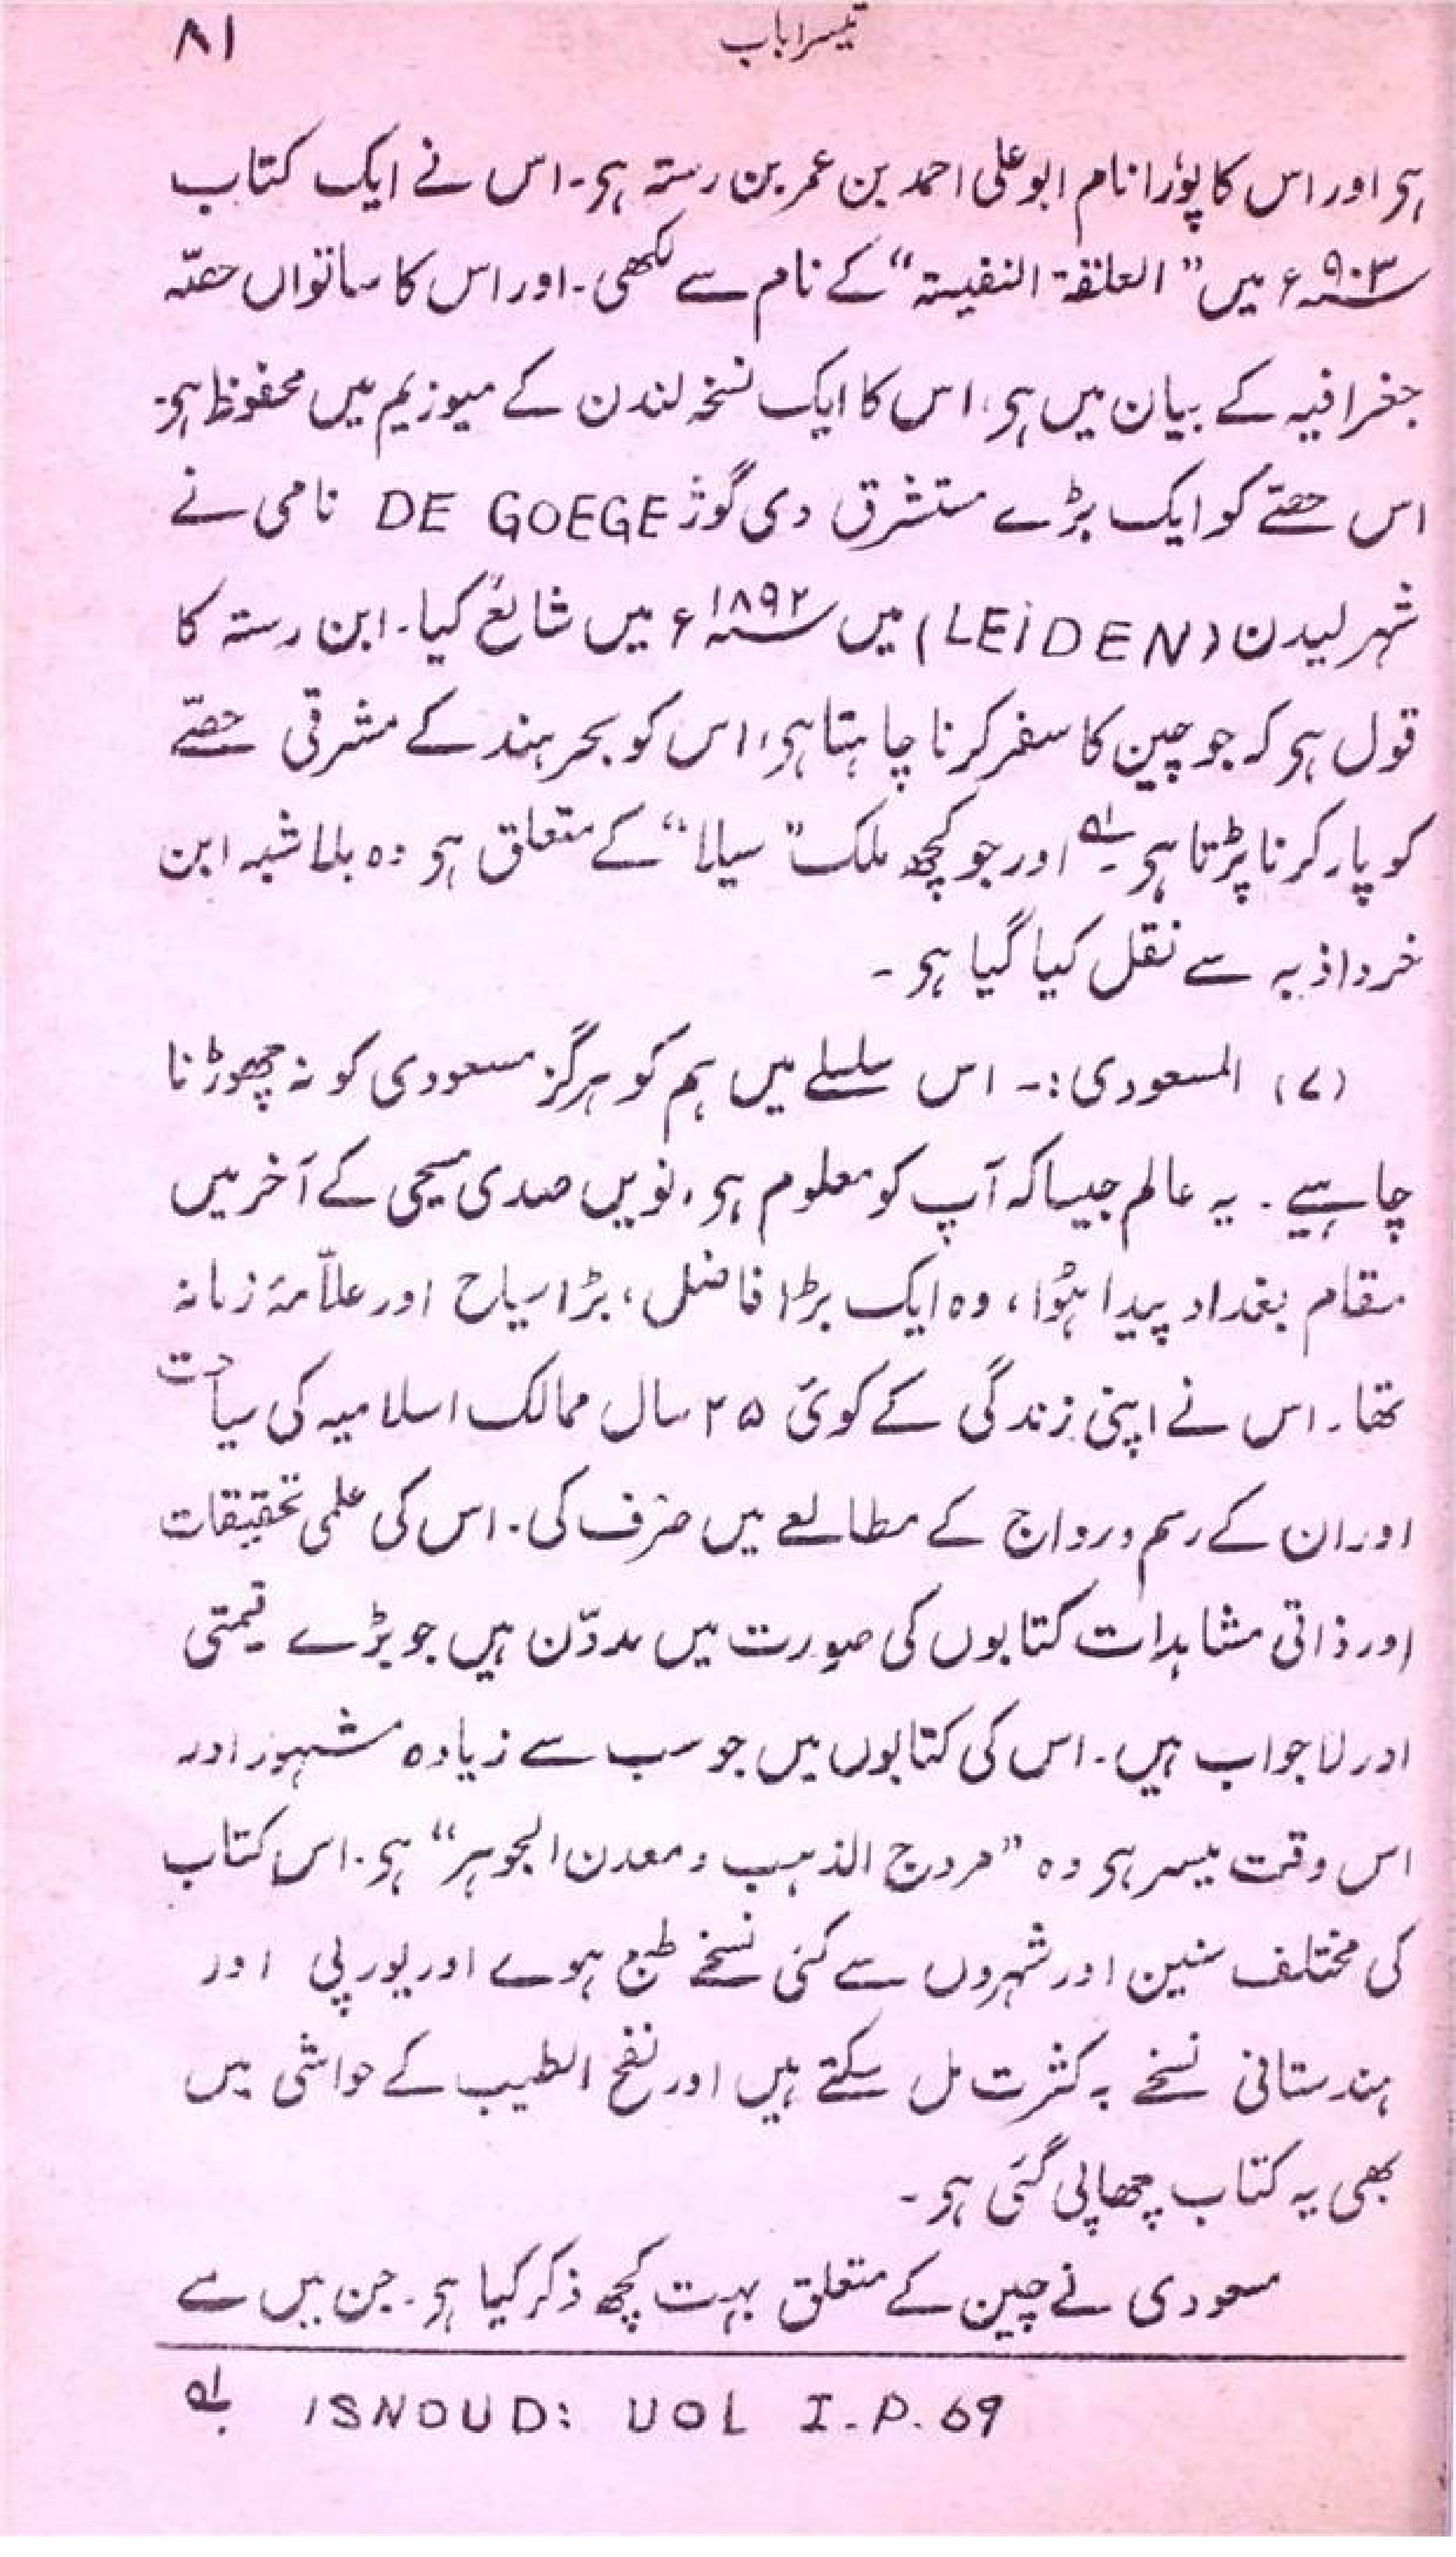 تیسرا باب ۸۱
ہی اور اس کا پورا نام ابو علی احمد بن عمر بن رستہ ہی۔ اس نے ایک کتاب
سنہ ۹۰۳ء میں "العلقة النفیستہ" کے نام سے لکھی۔ اور اس کا ساتواں حصّہ
جغرافیہ کے بیان میں ہی، اس کا ایک نسخہ لندن کے میوزیم میں محفوظ ہی۔
اس حصّے کو ایک بڑے مستشرق دی گوژ DE GOEGE نامی نے
شہر لیدن (LEiDEN) میں سنہ ۱۸۹۲ء میں شائع کیا۔ ابن رستہ کا
قول ہی کہ جو چین کا سفر کرنا چاہتا ہی، اس کو بحر ہند کے مشرقی حصّے
کو پار کرنا پڑتا ہی۔ لہ اور جو کچھ ملک "سیلا" کے متعلق ہی وہ بلا شبہ ابن
خرداذبہ سے نقل کیا گیا ہی۔
(۷) المسعودی :۔ اس سلسلے میں ہم کو ہرگز مسعودی کو نہ چھوڑنا
چاہیے۔ یہ عالم جیسا کہ آپ کو معلوم ہی، نویں صدی مسیحی کے آخر میں
مقام بغداد پیدا ہُوا، وہ ایک بڑا فاضل، بڑا سیاح اور علاّمۂ زمانہ
تھا۔ اس نے اپنی زندگی کے کوئی ۲۵ سال ممالک اسلامیہ کی سیاحت
اور ان کے رسم و رواج کے مطالعے میں صَرف کی۔ اس کی علمی تحقیقات
اور ذاتی مشاہدات کتابوں کی صورت میں مدوّن ہیں جو بڑے قیمتی
اور لاجواب ہیں۔ اس کی کتابوں میں جو سب سے زیادہ مشہور اور
اس وقت میسر ہی وہ "مروج الذہب و معدن الجوہر" ہی۔ اس کتاب
کی مختلف سنین اور شہروں سے کئی نسخے طبع ہوے اور یورپی اور
ہندستانی نسخے بہ کثرت مل سکتے ہیں اور نفح الطیب کے حواشی میں
بھی یہ کتاب چھاپی گئی ہی۔
مسعودی نے چین کے متعلق بہت کچھ ذکر کیا ہی۔ جن میں سے
لہ ISNOUD: UOL I.P.69